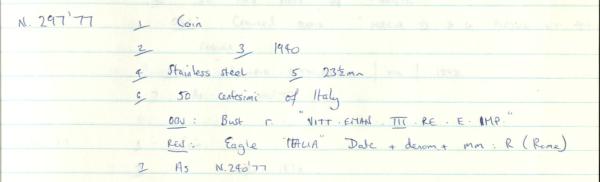 N. 297'77 1 Coin
2 3 1940
4 Stainless steel 5 23½mm
6 50 centesimi of Italy
OBV: Bust r. "VITT·EMAN·III·RE·E·IMP."
REV: Eagle "ITALIA" Date + denom + mm: R (Rome)
7 As N.290'77